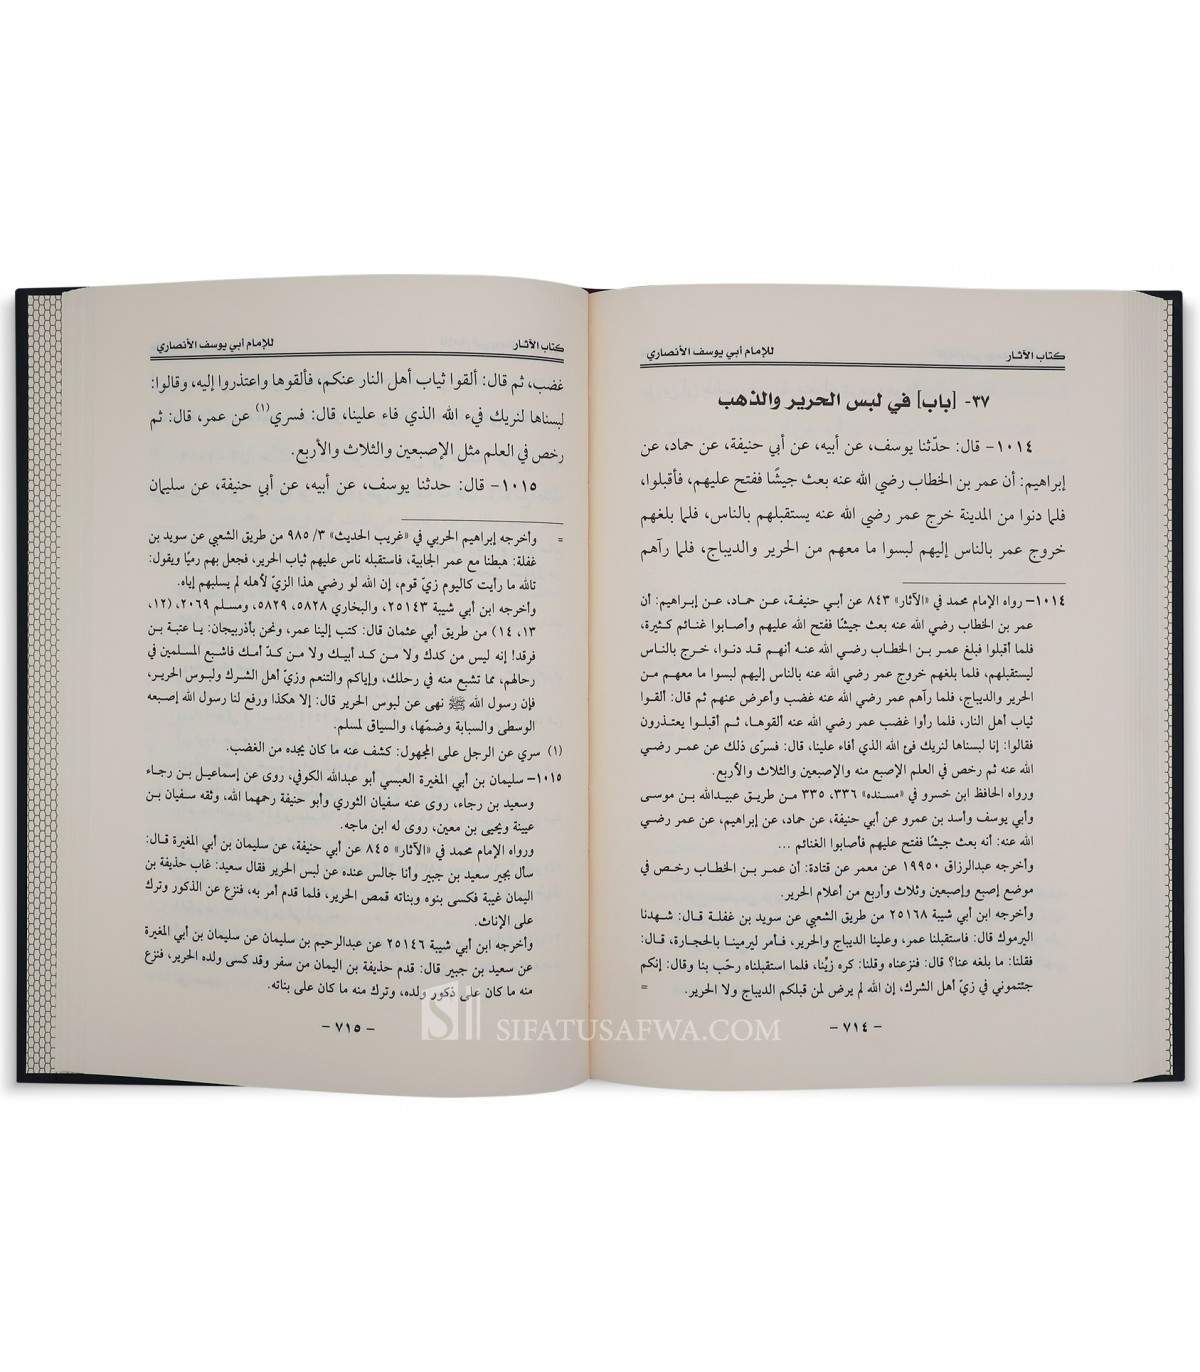 كتاب الآثار
للإمام أبي يوسف الأنصاري
٣٧- [باب] في لبس الحرير والذهب
١٠١٤- قال: حدّثنا يوسف، عن أبيه، عن أبي حنيفة، عن حماد، عن
إبراهيم: أن عمر بن الخطاب رضي الله عنه بعث جيشًا ففتح عليهم، فأقبلوا،
فلما دنوا من المدينة خرج عمر رضي الله عنه يستقبلهم بالناس، فلما بلغهم
خروج عمر بالناس إليهم لبسوا ما معهم من الحرير والديباج، فلما رآهم
١٠١٤- رواه الإمام محمد في «الآثار» ٨٤٣ عن أبي حنيفة، عن حماد، عن إبراهيم: أن
عمر بن الخطاب رضي الله عنه بعث جيشًا ففتح الله عليهم وأصابوا غنائم كثيرة،
فلما أقبلوا فبلغ عمر بن الخطاب رضي الله عنه أنهم قد دنوا، خرج بالناس
ليستقبلهم، فلما بلغهم خروج عمر رضي الله عنه بالناس إليهم لبسوا ما معهم من
الحرير والديباج، فلما رآهم عمر رضي الله عنه غضب وأعرض عنهم ثم قال: ألقوا
ثياب أهل النار، فلما رأوا غضب عمر رضي الله عنه ألقوها، ثم أقبلوا يعتذرون
فقالوا: إنا لبسناها لنريك فئ الله الذي أفاء علينا، قال: فسرّى ذلك عن عمر رضي
الله عنه ثم رخص في العلم الإصبع منه والإصبعين والثلاث والأربع.
ورواه الحافظ ابن خسرو في «مسنده» ٣٣٦، ٣٣٥ من طريق عبيدالله بن موسى
وأبي يوسف وأسد بن عمرو عن أبي حنيفة، عن حماد، عن إبراهيم، عن عمر رضي
الله عنه: أنه بعث جيشًا ففتح الله عليهم فأصابوا الغنائم ...
وأخرجه عبدالرزاق ١٩٩٥٠ عن معمر عن قتادة: أن عمر بن الخطاب رخص في
موضع إصبع وإصبعين وثلاث وأربع من أعلام الحرير.
وأخرجه ابن أبي شيبة ٢٥١٦٨ من طريق الشعبي عن سويد بن غفلة قال: شهدنا
اليرموك قال: فاستقبلنا عمر، وعلينا الديباج والحرير، فأمر ليرمينا بالحجارة، قال:
فقلنا: ما بلغه عنا؟ قال: فنزعناه وقلنا: كره زيّنا، فلما استقبلناه رحّب بنا وقال: إنكم
جئتموني في زيّ أهل الشرك، إن الله لم يرض لمن قبلكم الديباج ولا الحرير. =
- ٧١٤ -
كتاب الآثار
للإمام أبي يوسف الأنصاري
غضب، ثم قال: ألقوا ثياب أهل النار عنكم، فألقوها واعتذروا إليه، وقالوا:
لبسناها لنريك فيء الله الذي فاء علينا، قال: فسري(١) عن عمر، قال: ثم
رخص في العلم مثل الإصبعين والثلاث والأربع.
١٠١٥- قال: حدثنا يوسف، عن أبيه، عن أبي حنيفة، عن سليمان
= وأخرجه إبراهيم الحربي في «غريب الحديث» ٣/ ٩٨٥ من طريق الشعبي عن سويد بن
غفلة: هبطنا مع عمر الجابية، فاستقبله ناس عليهم ثياب الحرير، فجعل بهم رميًا ويقول:
تالله ما رأيت كاليوم زيّ قوم، إن الله لو رضي هذا الزيّ لأهله لم يسلبهم إياه.
وأخرجه ابن أبي شيبة ٢٥١٤٣، والبخاري ٥٨٢٨، ٥٨٢٩، ومسلم ٢٠٦٩، (١٢،
١٣، ١٤) من طريق أبي عثمان قال: كتب إلينا عمر، ونحن بأذربيجان: يا عتبة بن
فرقد! إنه ليس من كدك ولا من كد أبيك ولا من كدّ أمك فاشبع المسلمين في
رحالهم، مما تشبع منه في رحلك، وإياكم والتنعم وزيّ أهل الشرك ولبوس الحرير،
فإن رسول الله ﷺ نهى عن لبوس الحرير قال: إلا هكذا ورفع لنا رسول الله إصبعه
الوسطى والسبابة وضمّها، والسياق لمسلم.
(١) سري عن الرجل على المجهول: كشف عنه ما كان يجده من الغضب.
١٠١٥- سليمان بن أبي المغيرة العبسي أبو عبدالله الكوفي، روى عن إسماعيل بن رجاء
وسعيد بن رجاء، روى عنه سفيان الثوري وأبو حنيفة رحمهما الله، وثقه سفيان بن
عيينة ويحيى بن معين، روى له ابن ماجه.
ورواه الإمام محمد في «الآثار» ٨٤٥ عن أبي حنيفة، عن سليمان بن أبي المغيرة قال:
سأل بجير سعيد بن جبير وأنا جالس عنده عن لبس الحرير فقال سعيد: غاب حذيفة بن
اليمان غيبة فكسى بنوه وبناته قمص الحرير، فلما قدم أمر به، فنزع عن الذكور وترك
على الإناث.
وأخرجه ابن أبي شيبة ٢٥١٤٦ عن عبدالرحيم بن سليمان عن سليمان بن أبي المغيرة
عن سعيد بن جبير قال: قدم حذيفة بن اليمان من سفر وقد كسى ولده الحرير، فنزع
منه ما كان على ذكور ولده، وترك منه ما كان على بناته.
- ٧١٥ -
SIFATUSAFWA.COM